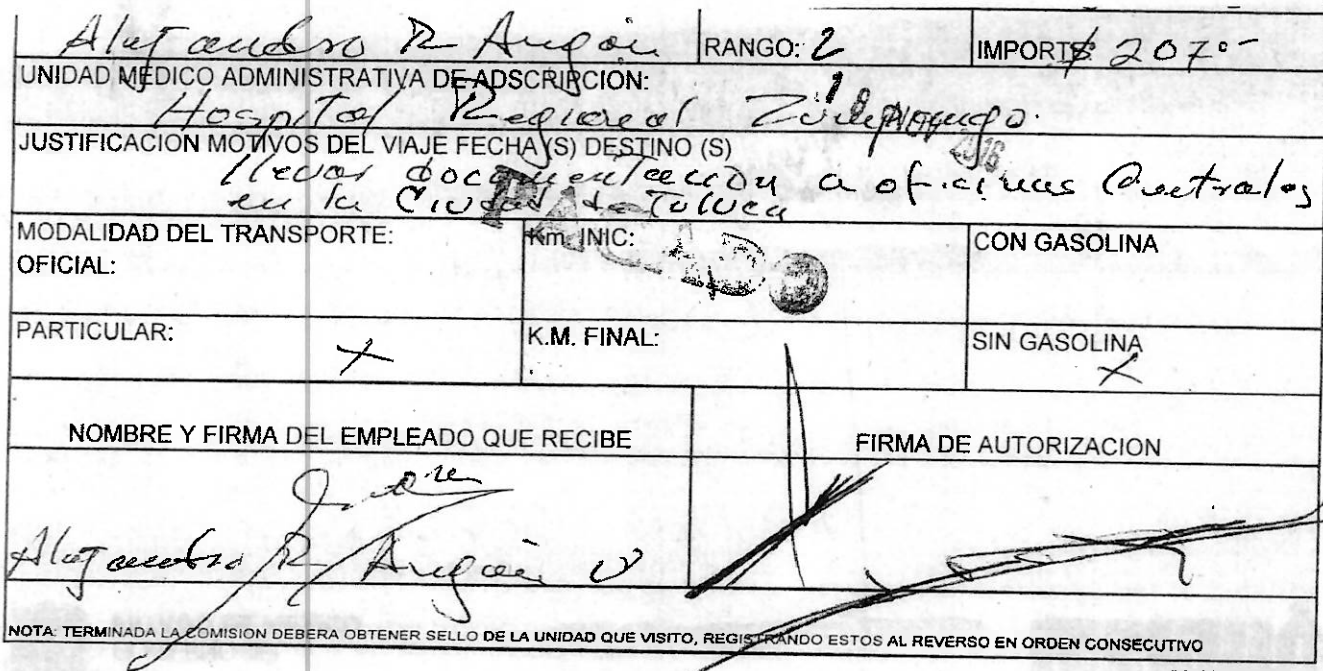 Alejandro R Angón RANGO: 2 IMPORTE: $ 207°-
UNIDAD MEDICO ADMINISTRATIVA DE ADSCRIPCION:
Hospital Regional Zumpango.
JUSTIFICACION MOTIVOS DEL VIAJE FECHA(S) DESTINO (S)
llevar documentación a oficinas Centrales
en la Ciudad de Toluca
PAGADO
MODALIDAD DEL TRANSPORTE: Km. INIC: CON GASOLINA
OFICIAL:
PARTICULAR: X K.M. FINAL: SIN GASOLINA X
NOMBRE Y FIRMA DEL EMPLEADO QUE RECIBE FIRMA DE AUTORIZACION
Alejandro R Angón V
NOTA: TERMINADA LA COMISION DEBERA OBTENER SELLO DE LA UNIDAD QUE VISITO, REGISTRANDO ESTOS AL REVERSO EN ORDEN CONSECUTIVO